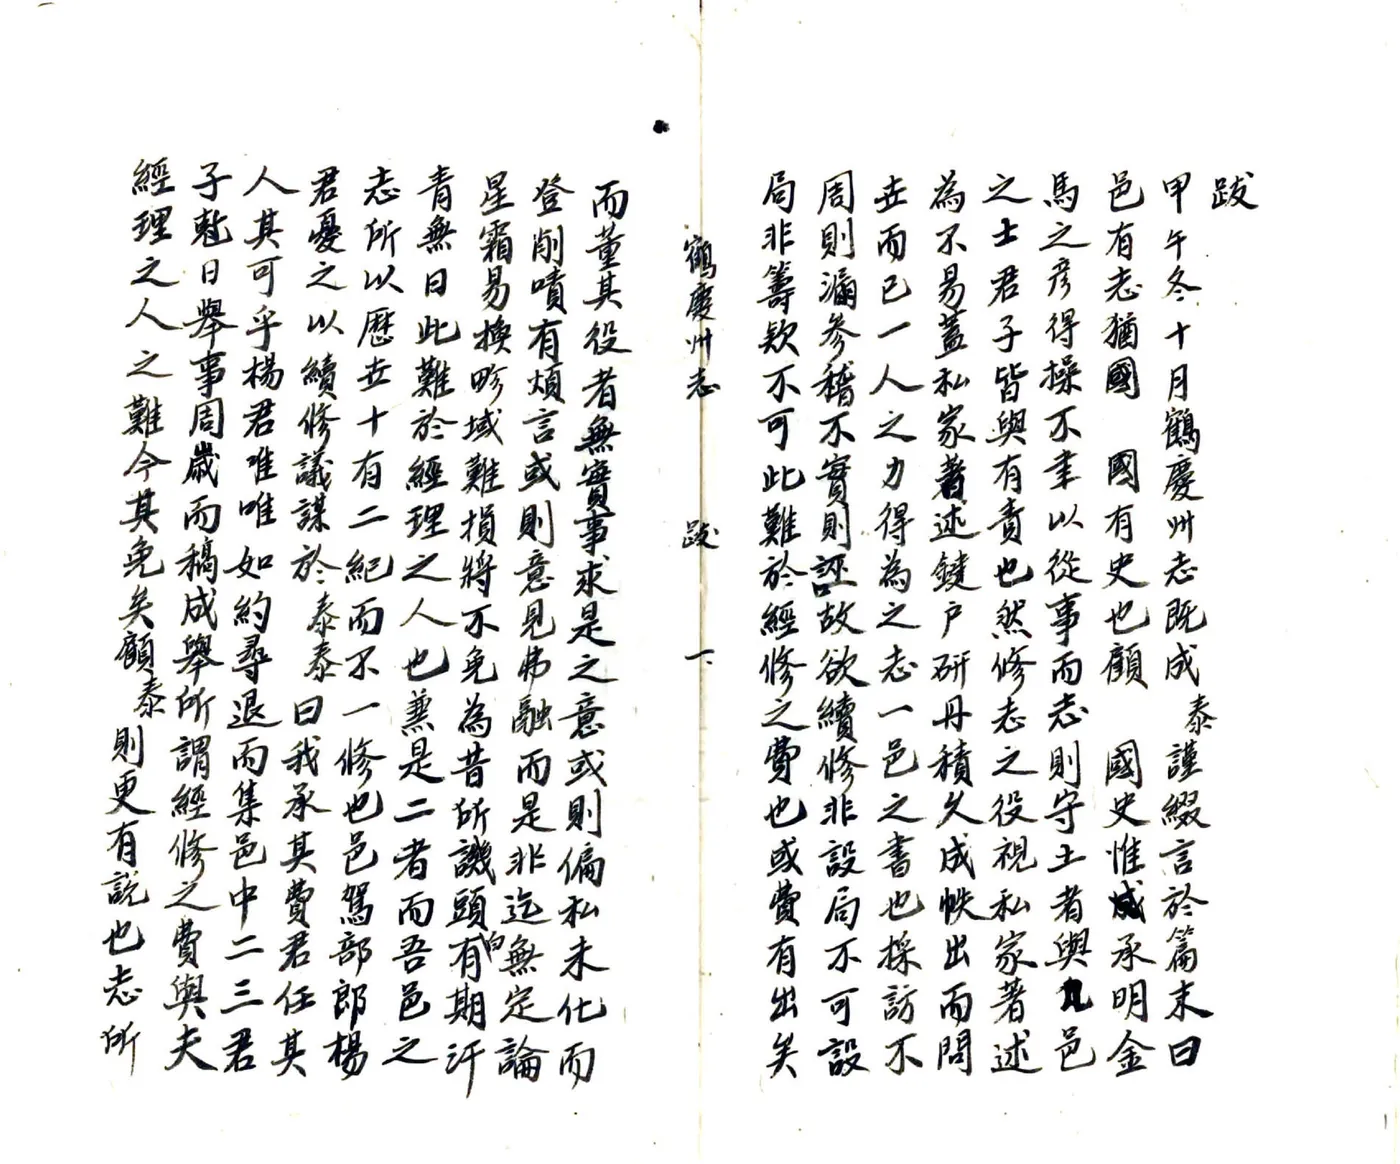 跋
甲午冬十月鶴慶州志既成泰謹綴言於篇末曰
邑有志猶國　國有史也顧　國史惟承明金
馬之彥得操不聿以從事而志則守土者與凡邑
之士君子皆與有責也然修志之役視私家著述
為不易蓋私家著述鍵户研丹積久成帙出而問
世而已一人之力得為之志一邑之書也採訪不
周則漏參稽不實則誣故欲續修非設局不可設
局非籌款不可此難於經修之費也或費有出矣
鶴慶州志　跋　一
而董其役者無實事求是之意或則偏私未化而
登削嘖有煩言或則意見弗融而是非迄無定論
星霜易換畛域難損將不免為昔所譏頭白有期汗
青無日此難於經理之人也兼是二者而吾邑之
志所以歷世十有二紀而不一修也邑駕部郎楊
君憂之以續修議謀於泰泰曰我承其費君任其
人其可乎楊君唯唯如約尋退而集邑中二三君
子尅日舉事周歲而稿成舉所謂經修之費與夫
經理之人之難今其免矣顧泰則更有說也志所